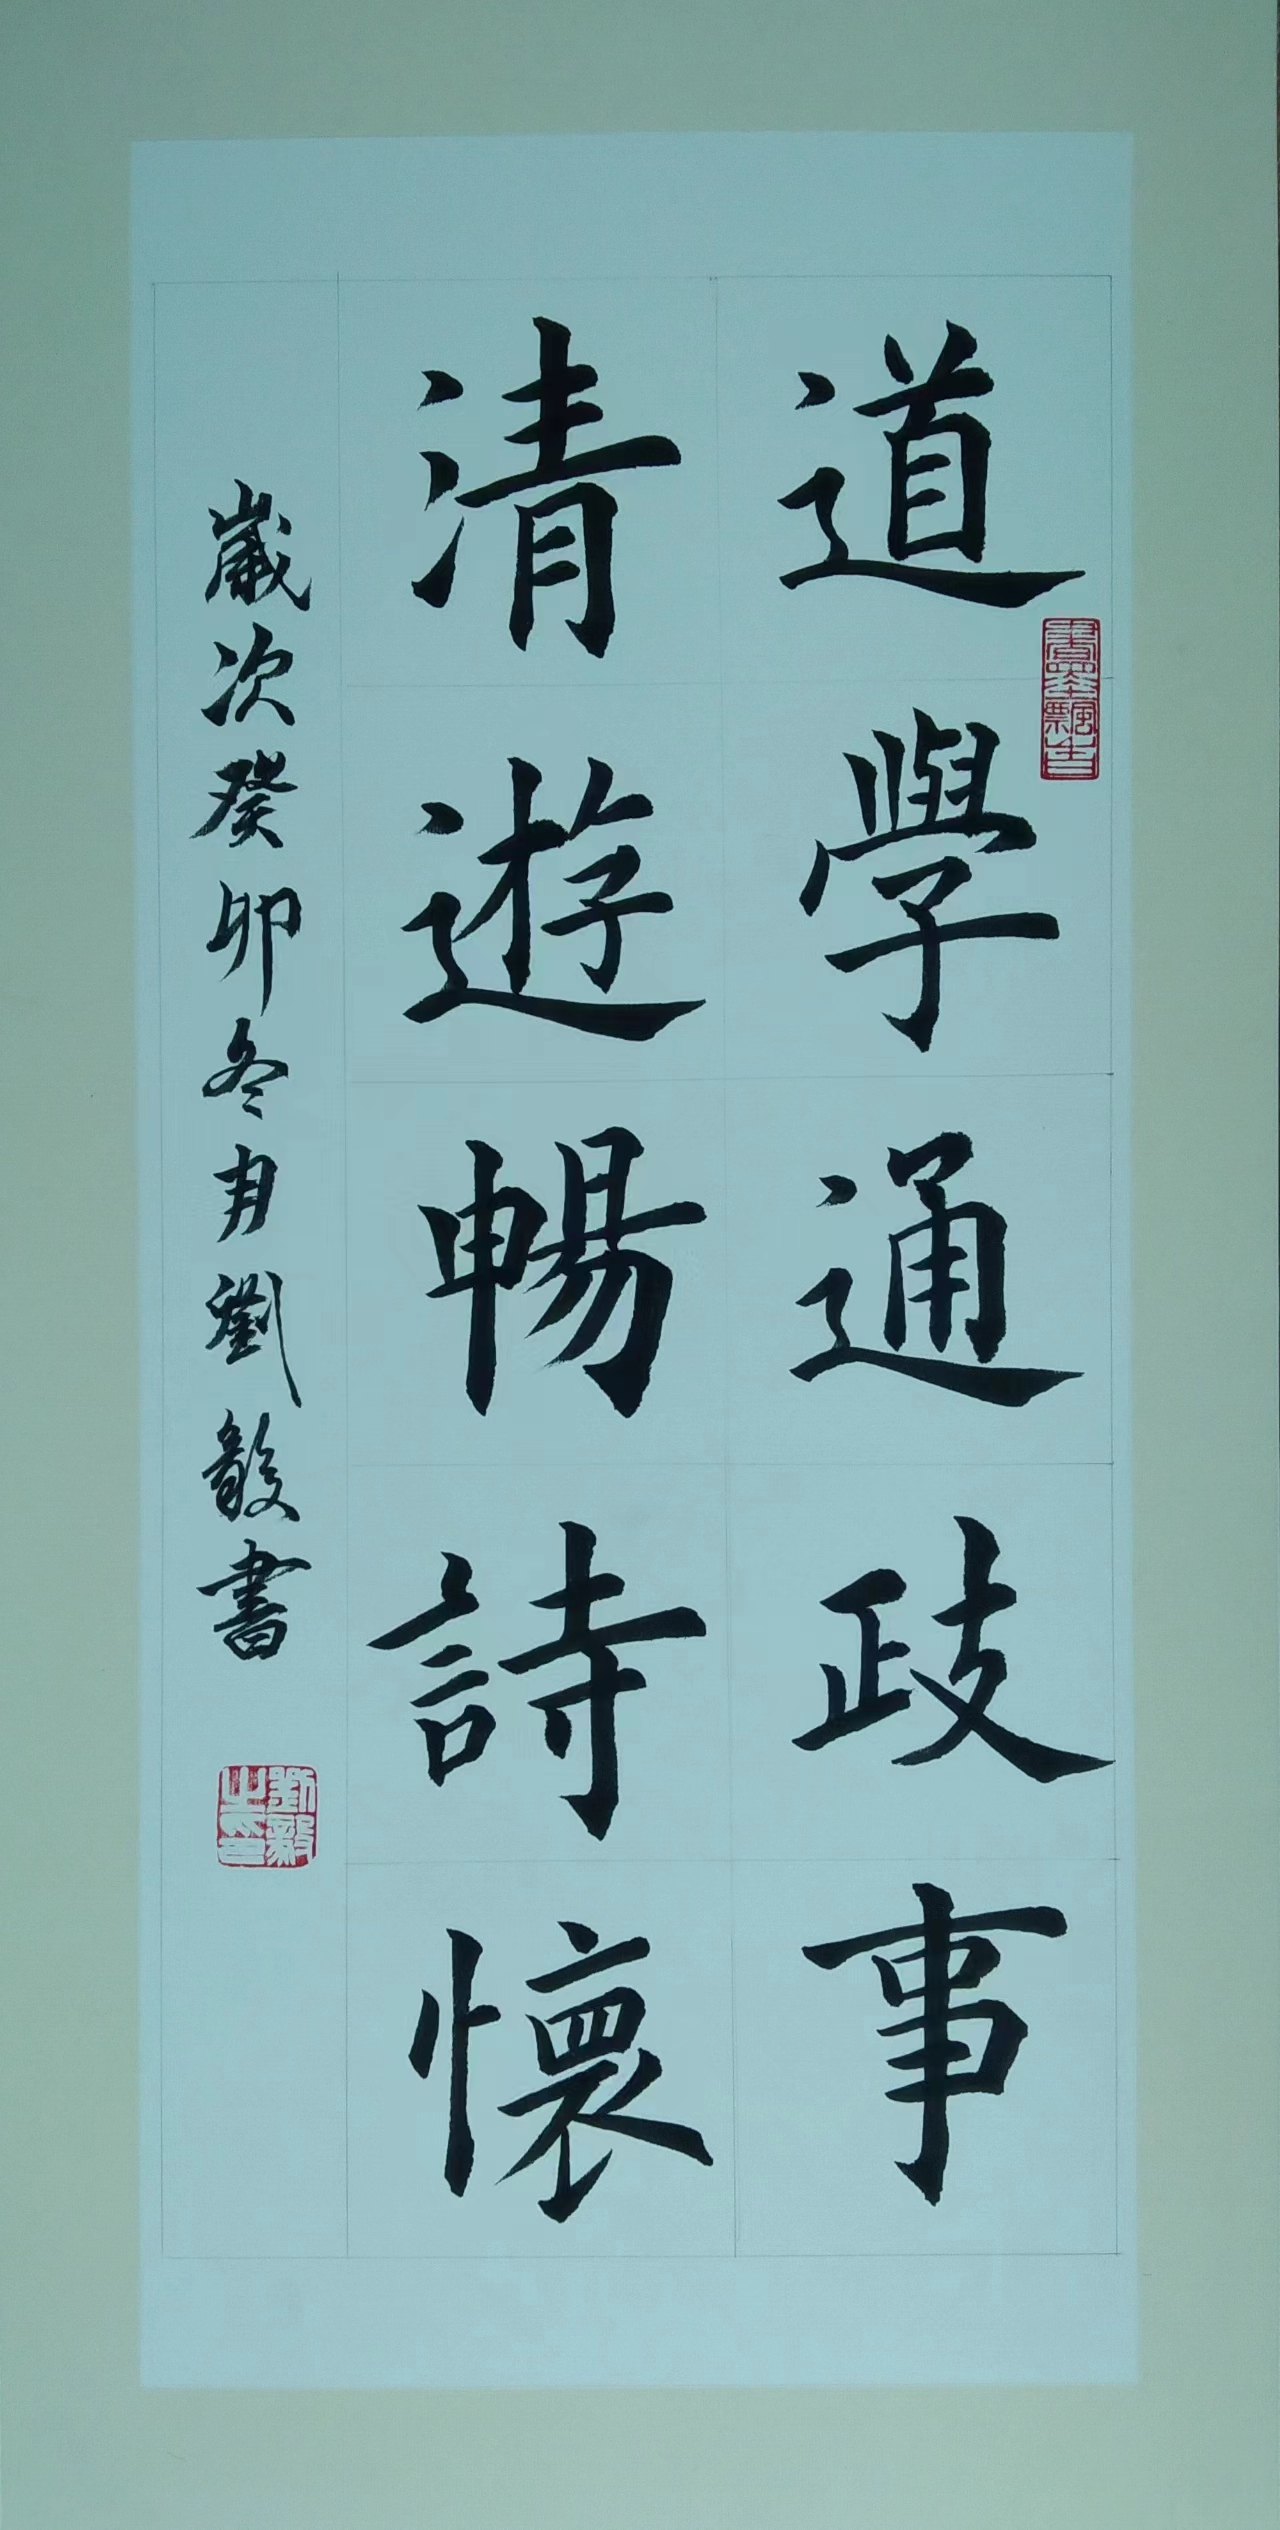 道學通政事
清遊暢詩懷
歲次癸卯冬月劉毅書
書墨飄香
劉毅之印